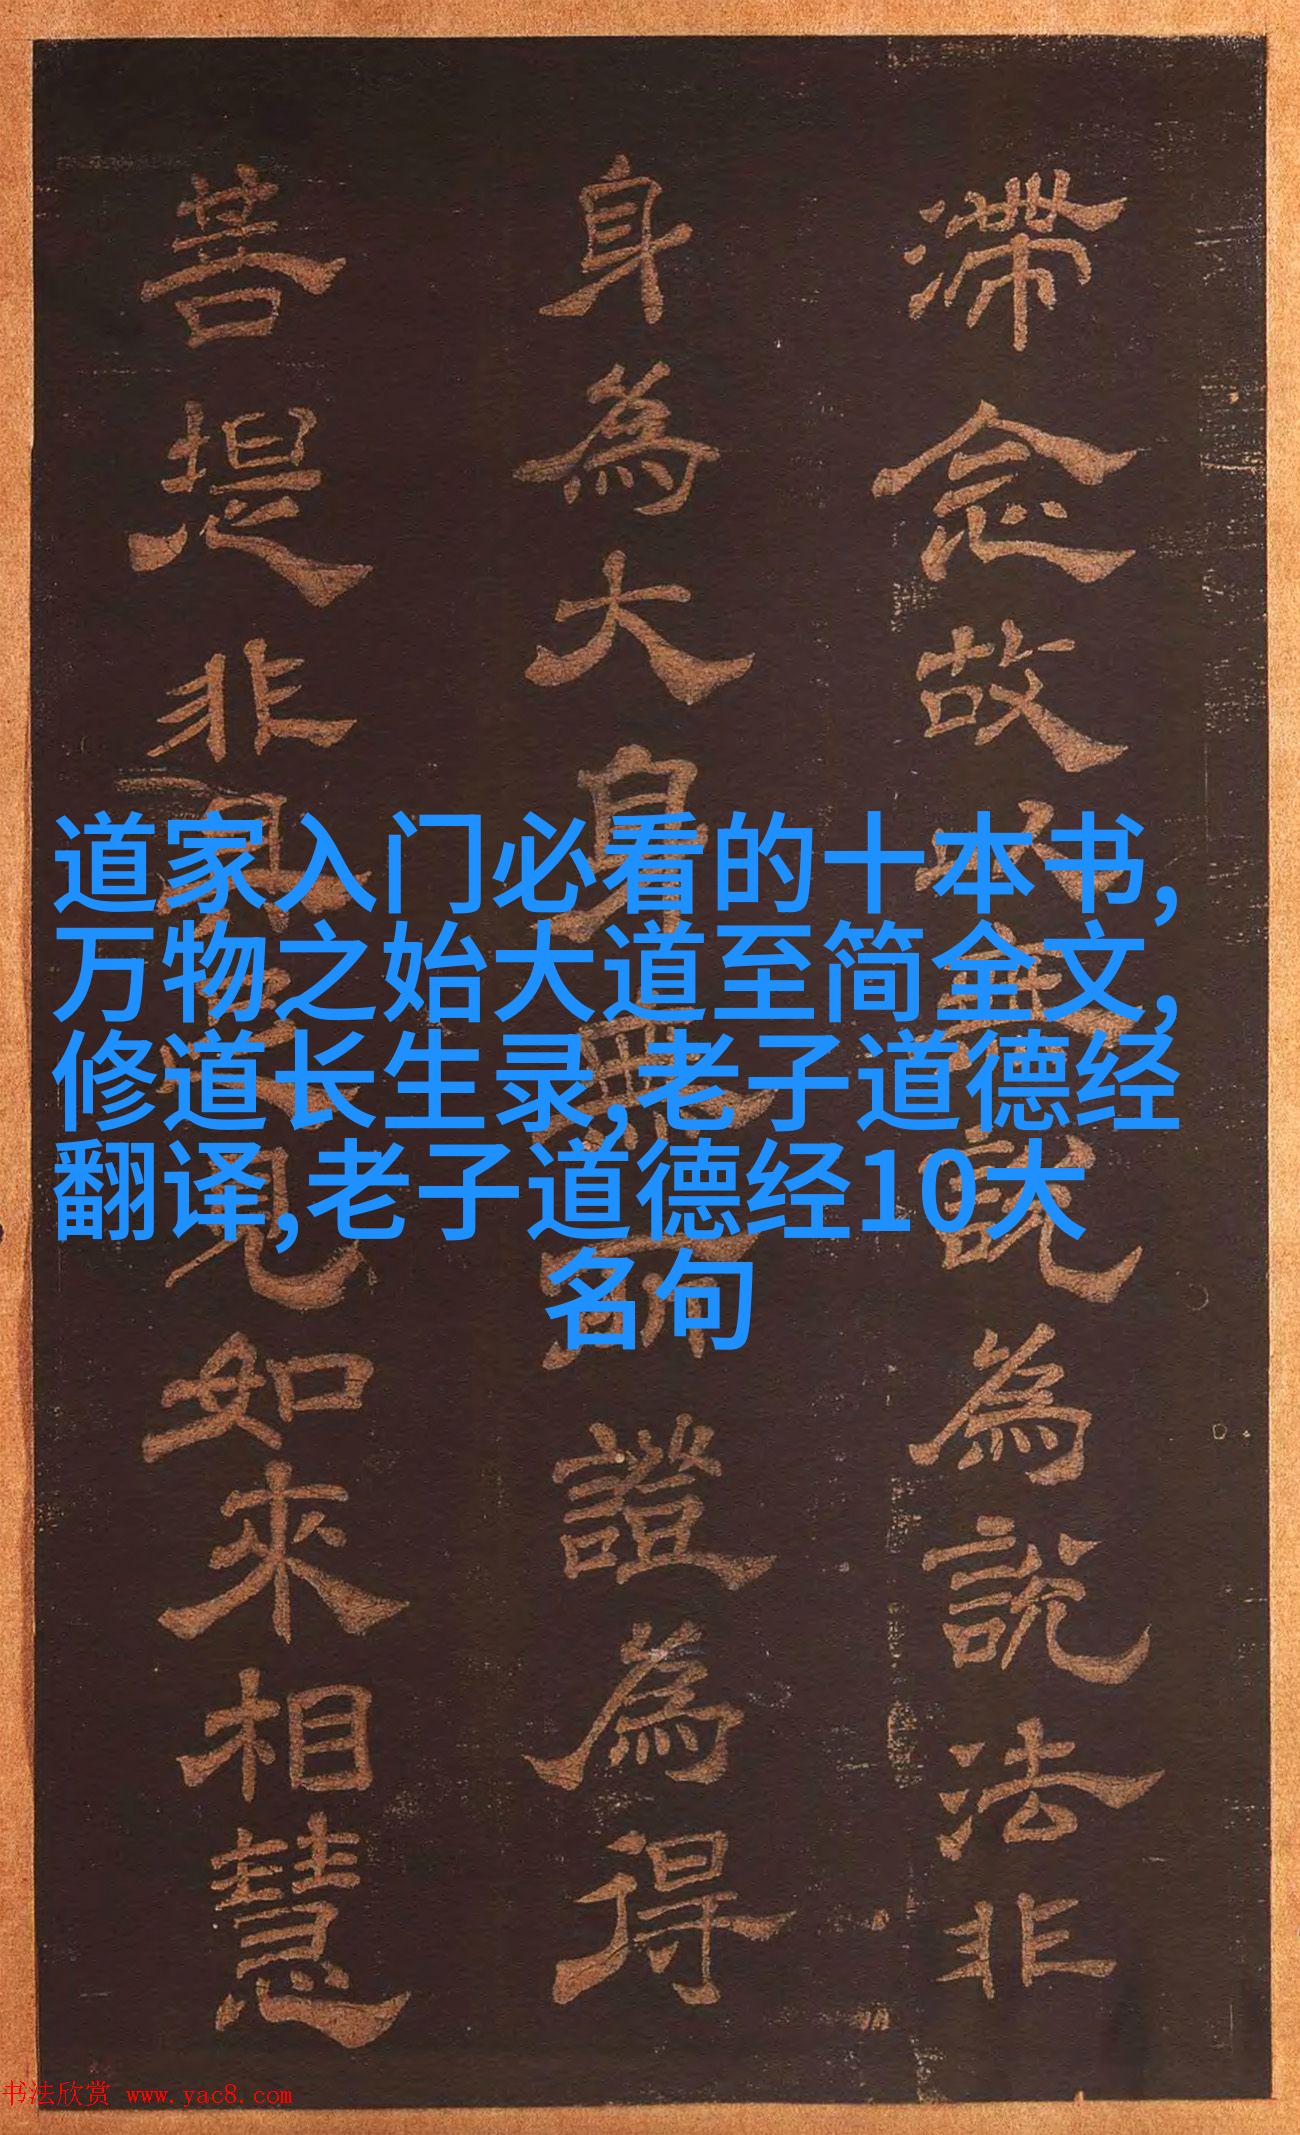 道家入门必看的十本书,
万物之始大道至简全文,
修道长生录,老子道德经
翻译,老子道德经10大
名句
滯念故說為說法非
身為大身無所證為得
菩提非見如來相慧
书法欣赏 www.yac8.com